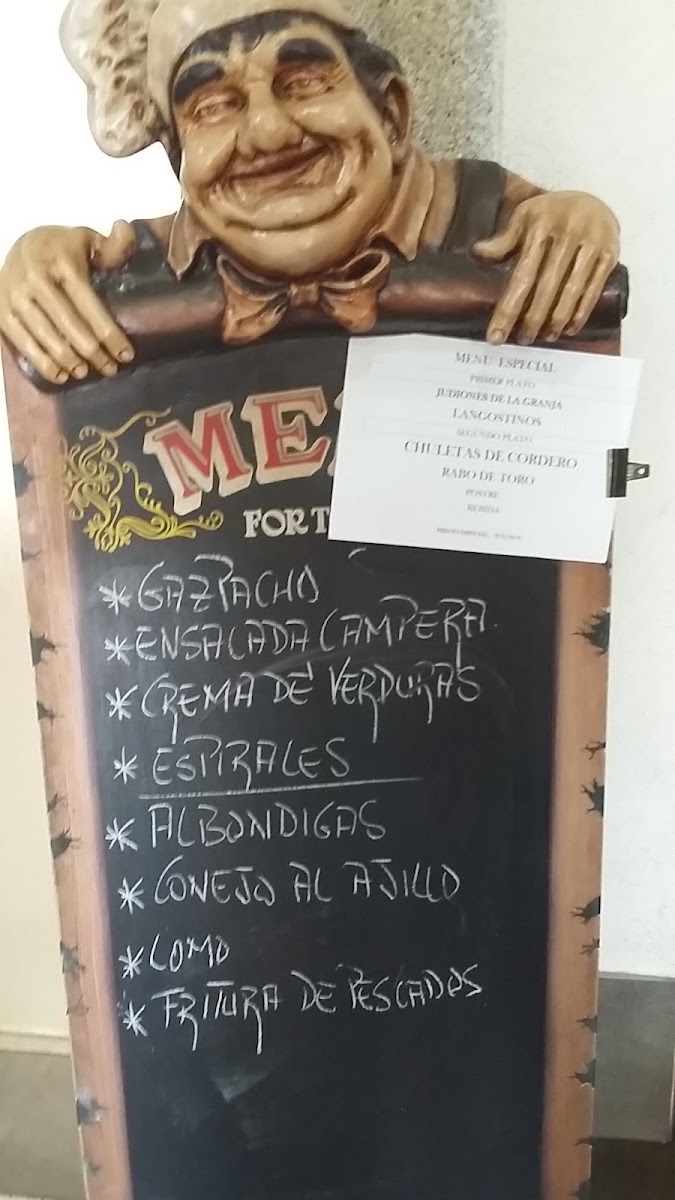 ME
FOR T
MENU ESPECIAL
PRIMER PLATO
JUDIONES DE LA GRANJA
LANGOSTINOS
SEGUNDO PLATO
CHULETAS DE CORDERO
RABO DE TORO
POSTRE
BEBIDA
PRECIO ESPECIAL
* GAZPACHO
* ENSALADA CAMPERA
* CREMA DE VERDURAS
* ESPIRALES
* ALBONDIGAS
* CONEJO AL AJILLO
* LOMO
* FRITURA DE PESCADOS